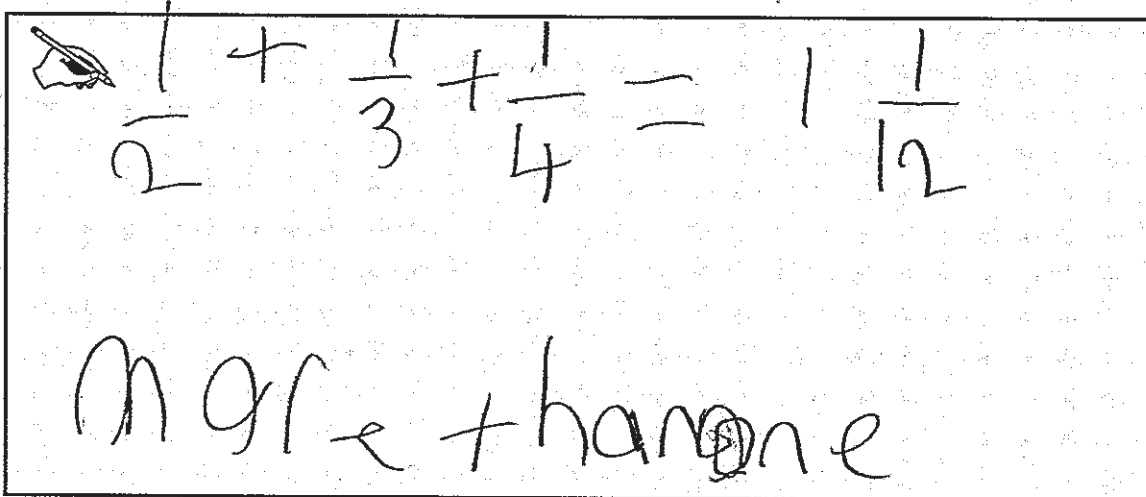 1/2 + 1/3 + 1/4 = 1 1/12
more than one